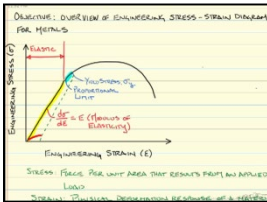 OBJECTIVE: OVERVIEW OF ENGINEERING STRESS-STRAIN DIAGRAM
FOR METALS
ELASTIC
ENGINEERING STRESS (σ)
YIELD STRESS, σy
PROPORTIONAL
LIMIT
dσ/dE = E (MODULUS OF
ELASTICITY)
ENGINEERING STRAIN (E)
STRESS: FORCE PER UNIT AREA THAT RESULTS FROM AN APPLIED
LOAD
STRAIN: PHYSICAL DEFORMATION RESPONSE OF A